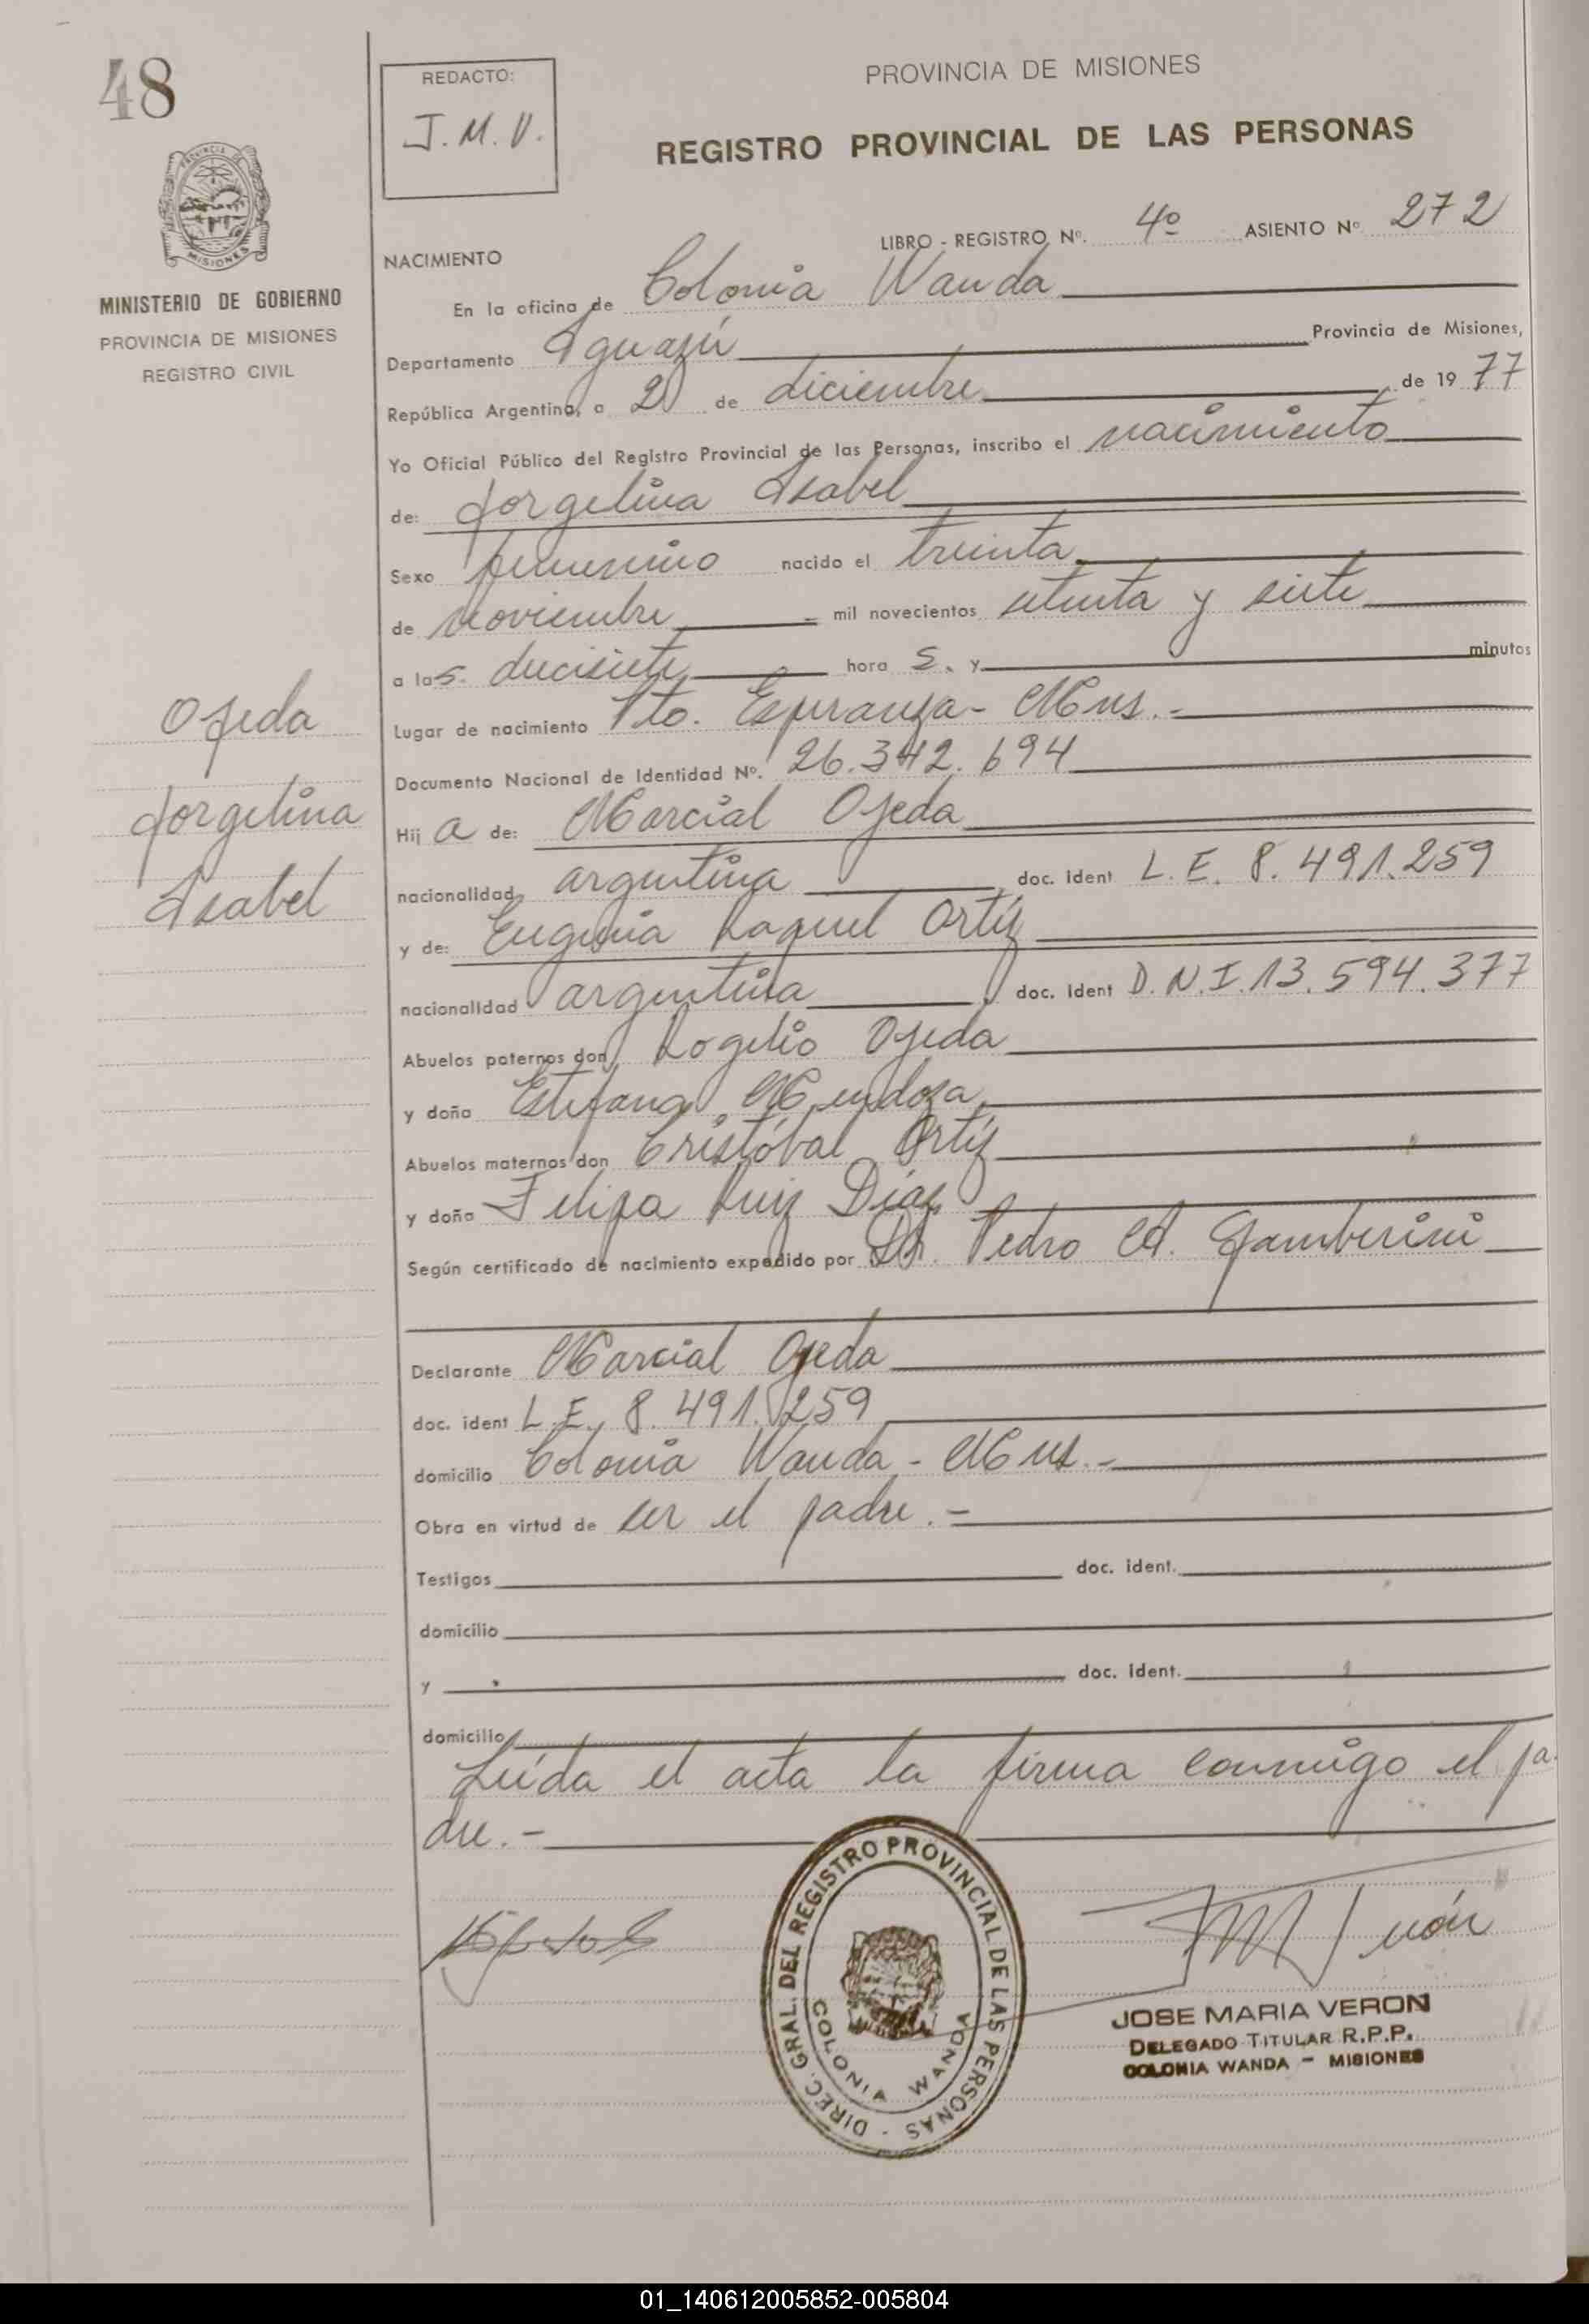 48
REDACTO:
J.M.V.
PROVINCIA DE MISIONES
REGISTRO PROVINCIAL DE LAS PERSONAS
PROVINCIA DE
MISIONES
MINISTERIO DE GOBIERNO
PROVINCIA DE MISIONES
REGISTRO CIVIL
LIBRO - REGISTRO Nº. 4º ASIENTO Nº 272
NACIMIENTO
En la oficina de Colonia Wanda
Departamento Iguazú Provincia de Misiones,
República Argentina, a 2 de diciembre de 1977
Yo Oficial Público del Registro Provincial de las Personas, inscribo el nacimiento
de: Jorgelina Isabel
Sexo femenino nacido el treinta
de noviembre mil novecientos setenta y siete
a las. diecisiete hora s. y minutos
Lugar de nacimiento Pto. Esperanza - Mns. -
Documento Nacional de Identidad Nº. 26.342.694
Hij a de: Marcial Ojeda
nacionalidad argentina doc. ident L.E. 8.491.259
y de: Eugenia Raquel Ortíz
nacionalidad argentina doc. ident D.N.I. 13.594.377
Abuelos paternos don Rogelio Ojeda
y doña Estefana Mendoza
Abuelos maternos don Cristóbal Ortíz
y doña Felipa Ruiz Díaz
Según certificado de nacimiento expedido por Dr. Pedro A. Gamberini
Declarante Marcial Ojeda
doc. ident L.E. 8.491.259
domicilio Colonia Wanda - Mns. -
Obra en virtud de ser el padre. -
Testigos doc. ident.
domicilio
y doc. ident.
domicilio
Leída el acta la firma conmigo el pa-
dre. -
Ojeda
Jorgelina
Isabel
DIREC. GRAL. DEL REGISTRO PROVINCIAL DE LAS PERSONAS -
COLONIA WANDA
JOSE MARIA VERON
DELEGADO TITULAR R.P.P.
COLONIA WANDA - MISIONES
01_140612005852-005804